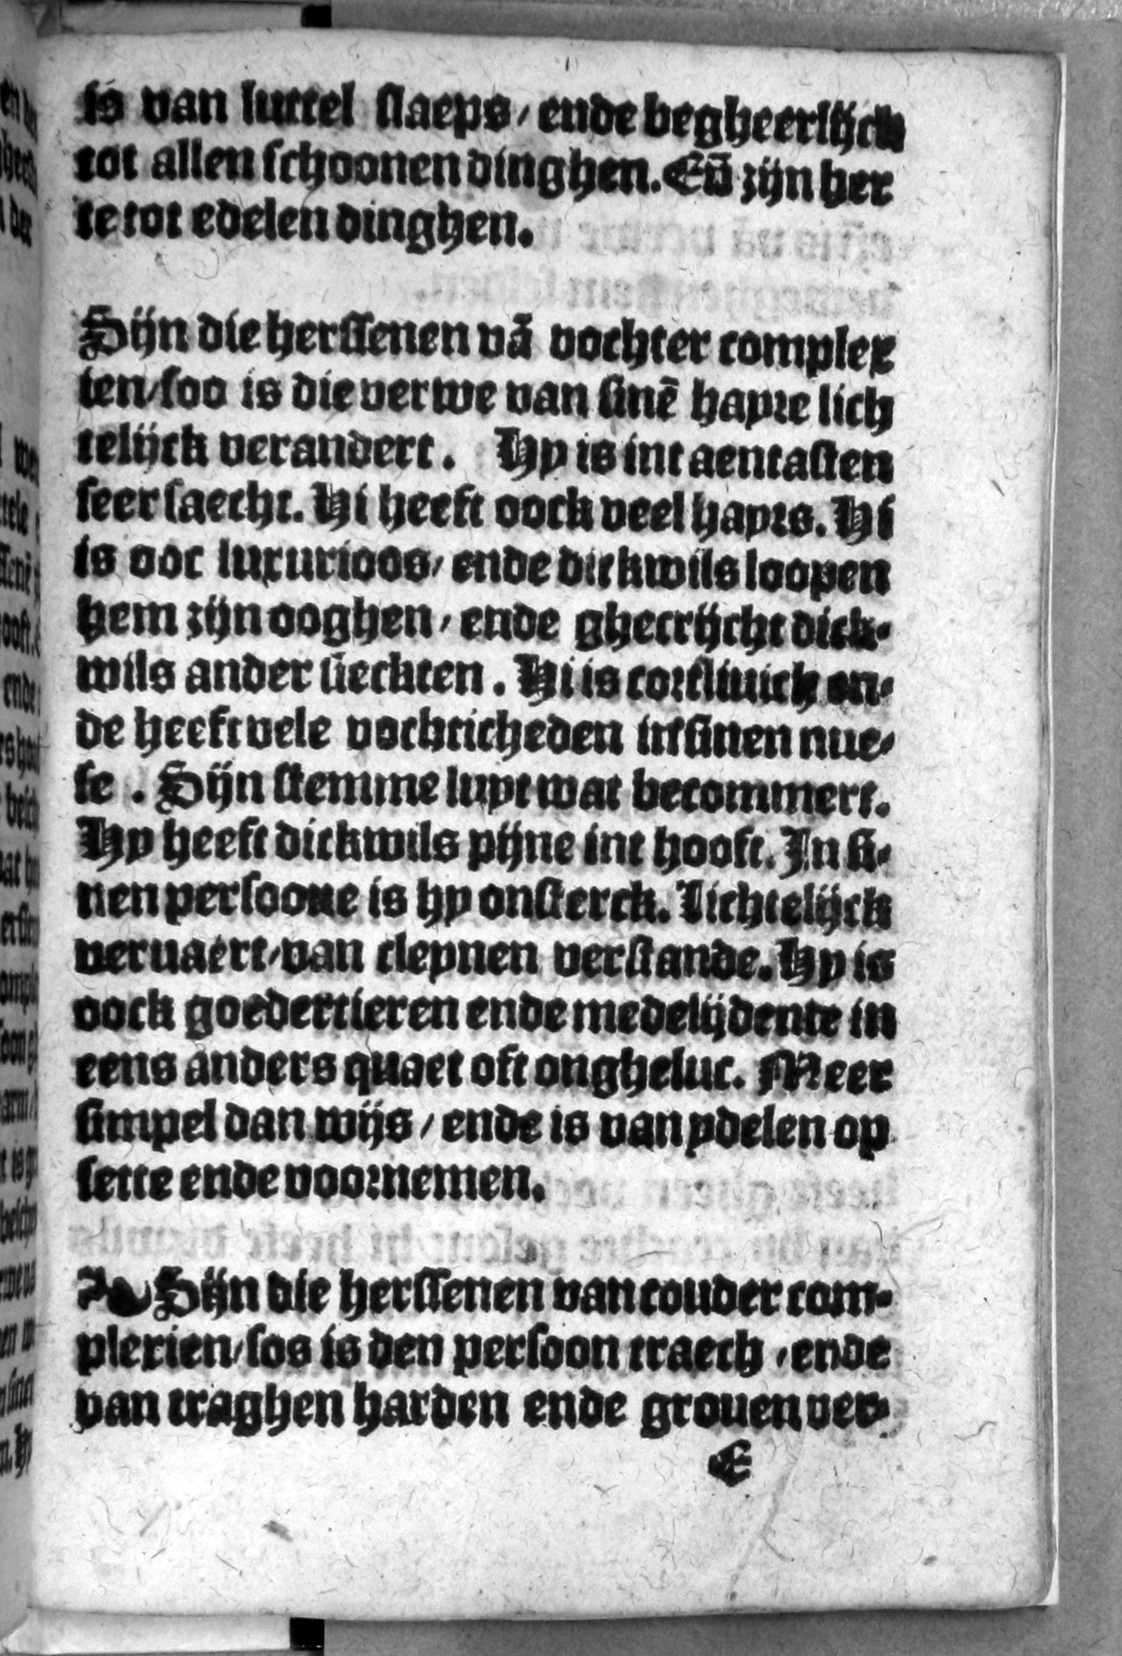 is van luttel slaeps/ ende begheerlijck
tot allen schoonen dinghen. Eñ zijn her
te tot edelen dinghen.
Sijn die herssenen vā vochter complex
ien/soo is die verwe van sinē hayre lich
telijck verandert. Hy is int aentasten
seer saecht. Hi heeft oock veel hayrs. Hi
is ooc luxurioos/ ende dickwils loopen
hem zijn ooghen/ ende ghecrijcht dick-
wils ander sieckten. Hi is en-
de heeft vele vochticheden in sinen nue-
se. Sijn stemme luyt wat becommert.
Hy heeft dickwils pijne int hooft. In si-
nen persoone is hy onsterck. Lichtelijck
veruaert/van cleynen verstande. Hy is
oock goedertieren ende medelijdente in
eens anders quaet oft ongheluc. Meer
simpel dan wijs/ ende is van ydelen op
sette ende voornemen.
Sijn die herssenen van couder com-
plexien/soo is den persoon traech/ende
van traghen harden ende grouen ver-
E